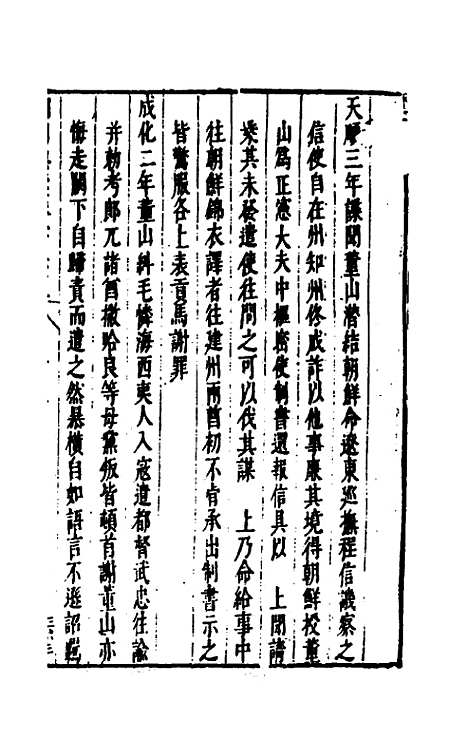 天順三年諜聞董山潜結朝鮮命遼東巡撫程信譏察之
信使自在州知州佟成詐以他事廉其境得朝鮮授董
山為正憲大夫中樞密使制書還報信具以　上聞請
乘其未發遣使往問之可以伐其謀　上乃命給事中
往朝鮮錦衣譯者往建州兩酋初不肯承出制書示之
皆驚服各上表貢馬謝罪
成化二年董山糾毛憐海西夷人入寇遣都督武忠往諭
并勑考郎兀諸酋撒哈良等毋黨叛皆頓首謝董山亦
悔走闕下自歸責而遣之然暴橫自如語言不遜詔羈